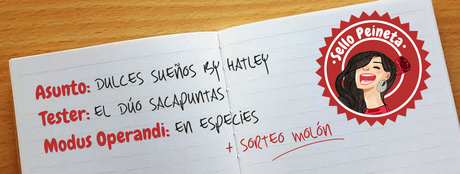 Asunto: DULCES SUEÑOS BY HATLEY
Tester: EL DÚO SACAPUNTAS
Modus Operandi: EN ESPECIES
+ SORTEO MOLÓN
·Sello Peineta·